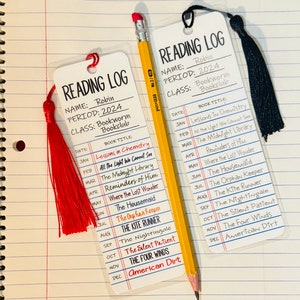 READING LOG
NAME: Robin
PERIOD: 2024
CLASS: Bookworm
Bookclub
DATE BOOK TITLE:
JAN Lessons in Chemistry
FEB All the Light We Cannot See
MAR The Midnight Library
APR Reminders of Him
MAY Where the Lost Wander
JUN The Household
JUL The Orphan Keeper
AUG THE KITE RUNNER
SEP The Nightingale
OCT The Silent Patient
NOV THE FOUR WINDS
DEC American Dirt
READING LOG
NAME: Robin
PERIOD: 2024
CLASS: Bookworm
Bookclub
DATE BOOK TITLE:
JAN Lessons in Chemistry
FEB All the Light We Cannot See
MAR The Midnight Library
APR Reminders of Him
MAY Where the Lost Wander
JUN The Household
JUL The Orphan Keeper
AUG The Kite Runner
SEP The Nightingale
OCT The Silent Patient
NOV The Four Winds
DEC American Dirt